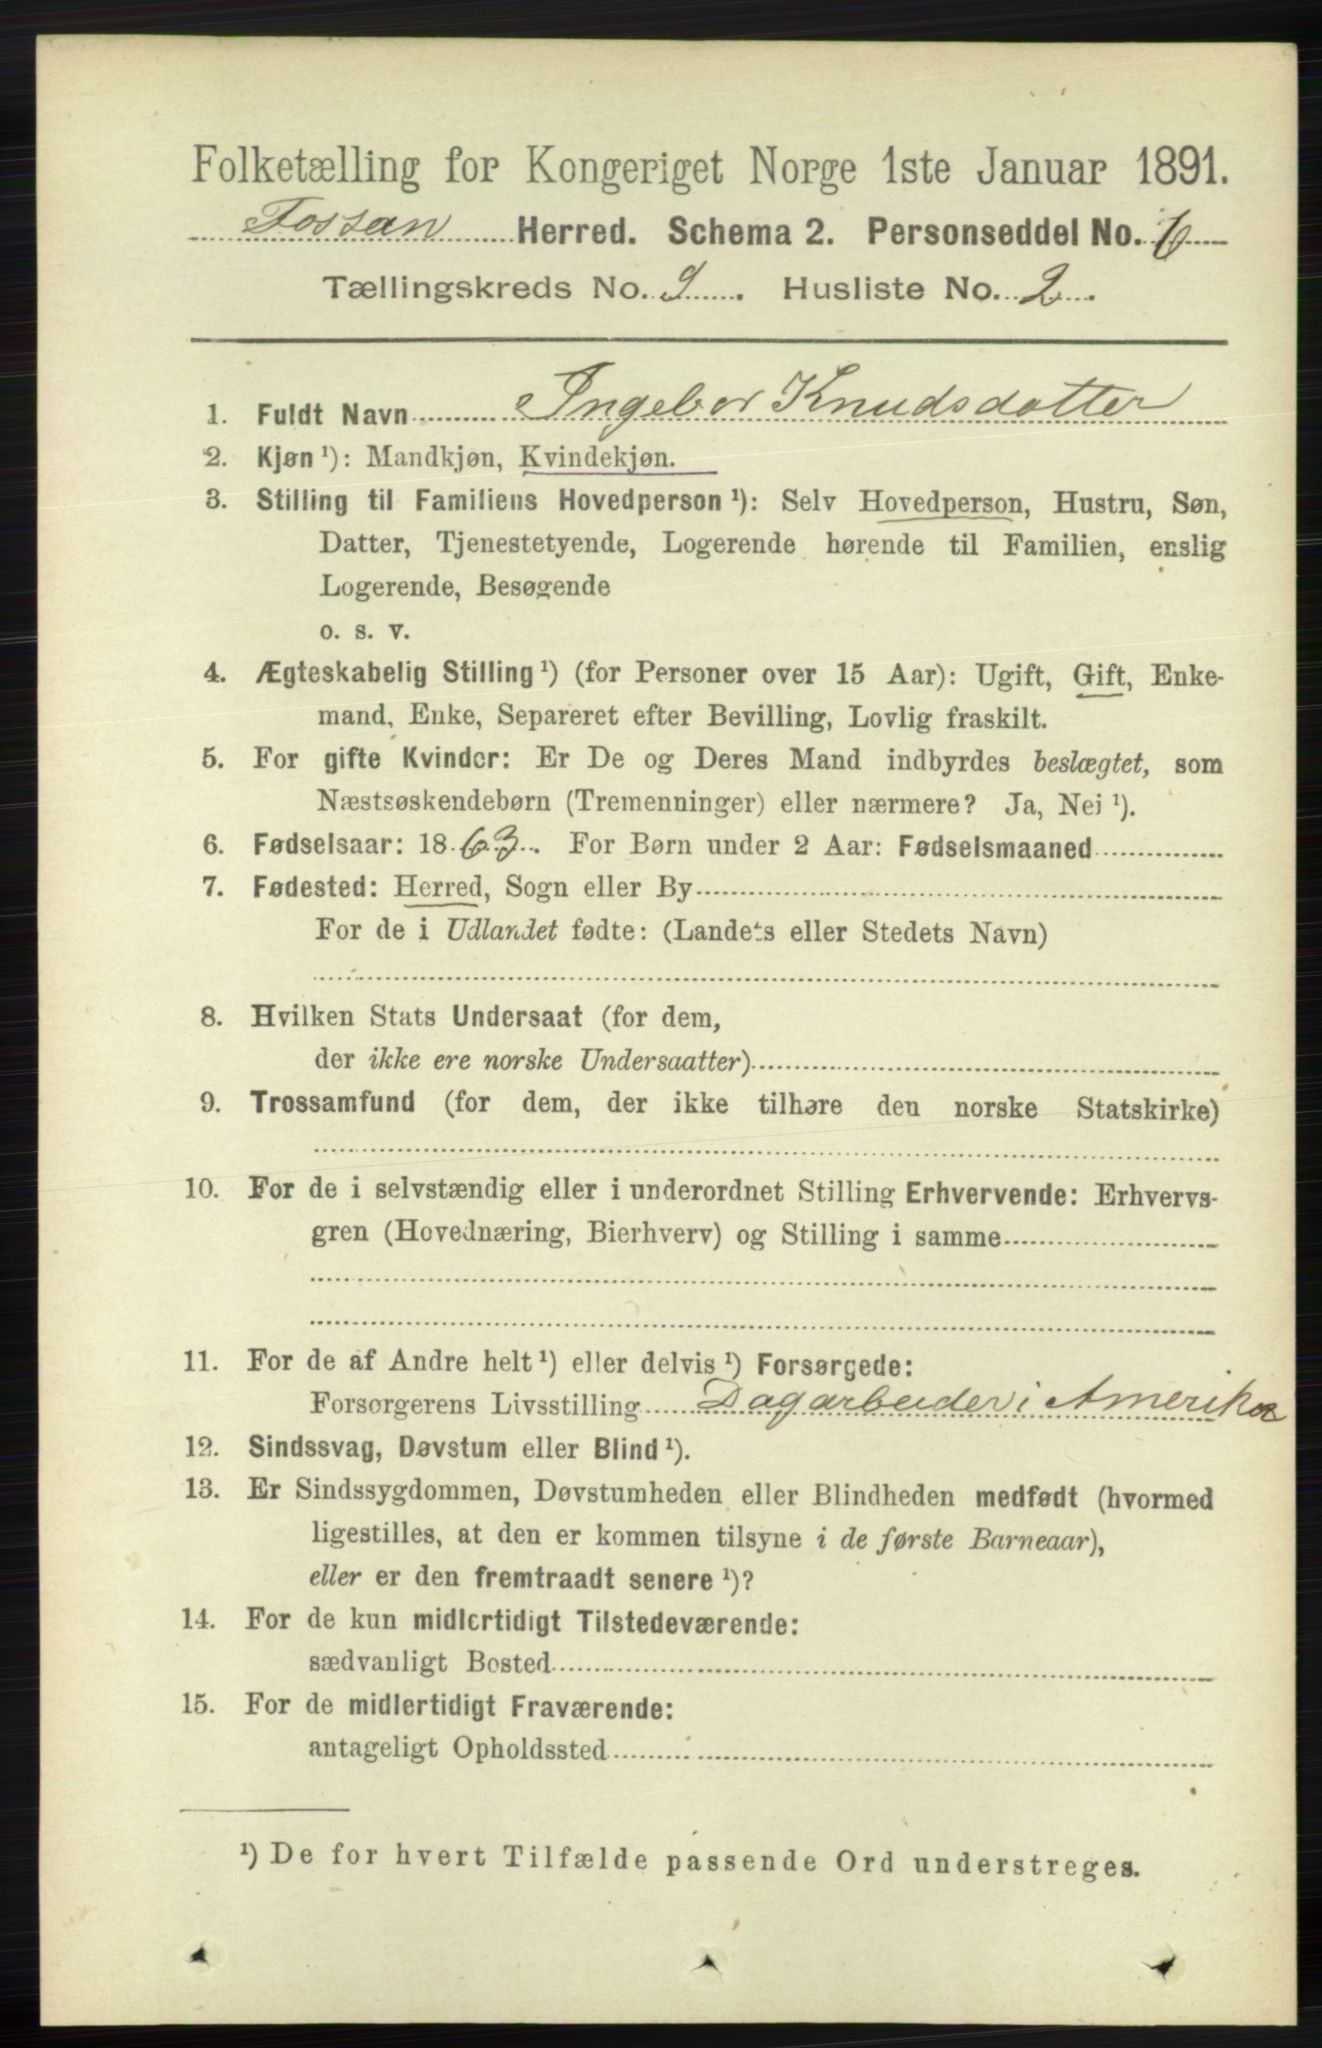 Folketælling for Kongeriget Norge 1ste Januar 1891.
Fossan Herred. Schema 2. Personseddel No. 6
Tællingskreds No. 9. Husliste No. 2.
1. Fuldt Navn Ingebor Knudsdatter
2. Kjøn ¹): Mandkjøn, Kvindekjøn.
3. Stilling til Familiens Hovedperson ¹): Selv Hovedperson, Hustru, Søn,
Datter, Tjenestetyende, Logerende hørende til Familien, enslig
Logerende, Besøgende
o. s. v.
4. Ægteskabelig Stilling ¹) (for Personer over 15 Aar): Ugift, Gift, Enke-
mand, Enke, Separeret efter Bevilling, Lovlig fraskilt.
5. For gifte Kvinder: Er De og Deres Mand indbyrdes beslægtet, som
Næstsøskendebørn (Tremenninger) eller nærmere? Ja, Nei ¹).
6. Fødselsaar: 1863. For Børn under 2 Aar: Fødselsmaaned
7. Fødested: Herred, Sogn eller By
For de i Udlandet fødte: (Landets eller Stedets Navn)
8. Hvilken Stats Undersaat (for dem,
der ikke ere norske Undersaatter)
9. Trossamfund (for dem, der ikke tilhøre den norske Statskirke)
10. For de i selvstændig eller i underordnet Stilling Erhvervende: Erhvervs-
gren (Hovednæring, Bierhverv) og Stilling i samme
11. For de af Andre helt ¹) eller delvis ¹) Forsørgede:
Forsørgerens Livsstilling Dagarbeider i Amerika
12. Sindssvag, Døvstum eller Blind ¹).
13. Er Sindssygdommen, Døvstumheden eller Blindheden medfødt (hvormed
ligestilles, at den er kommen tilsyne i de første Barneaar),
eller er den fremtraadt senere ¹)?
14. For de kun midlertidigt Tilstedeværende:
sædvanligt Bosted
15. For de midlertidigt Fraværende:
antageligt Opholdssted
¹) De for hvert Tilfælde passende Ord understreges.